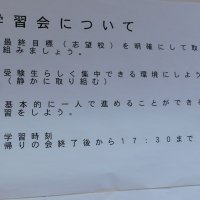 学習会について
最終目標(志望校)を明確にして取
組みましょう。
受験生らしく集中できる環境にしよう
(静かに取り組む)
基本的に一人で進めることができる
習をしよう。
学習時刻
帰りの会終了後から17:30まで